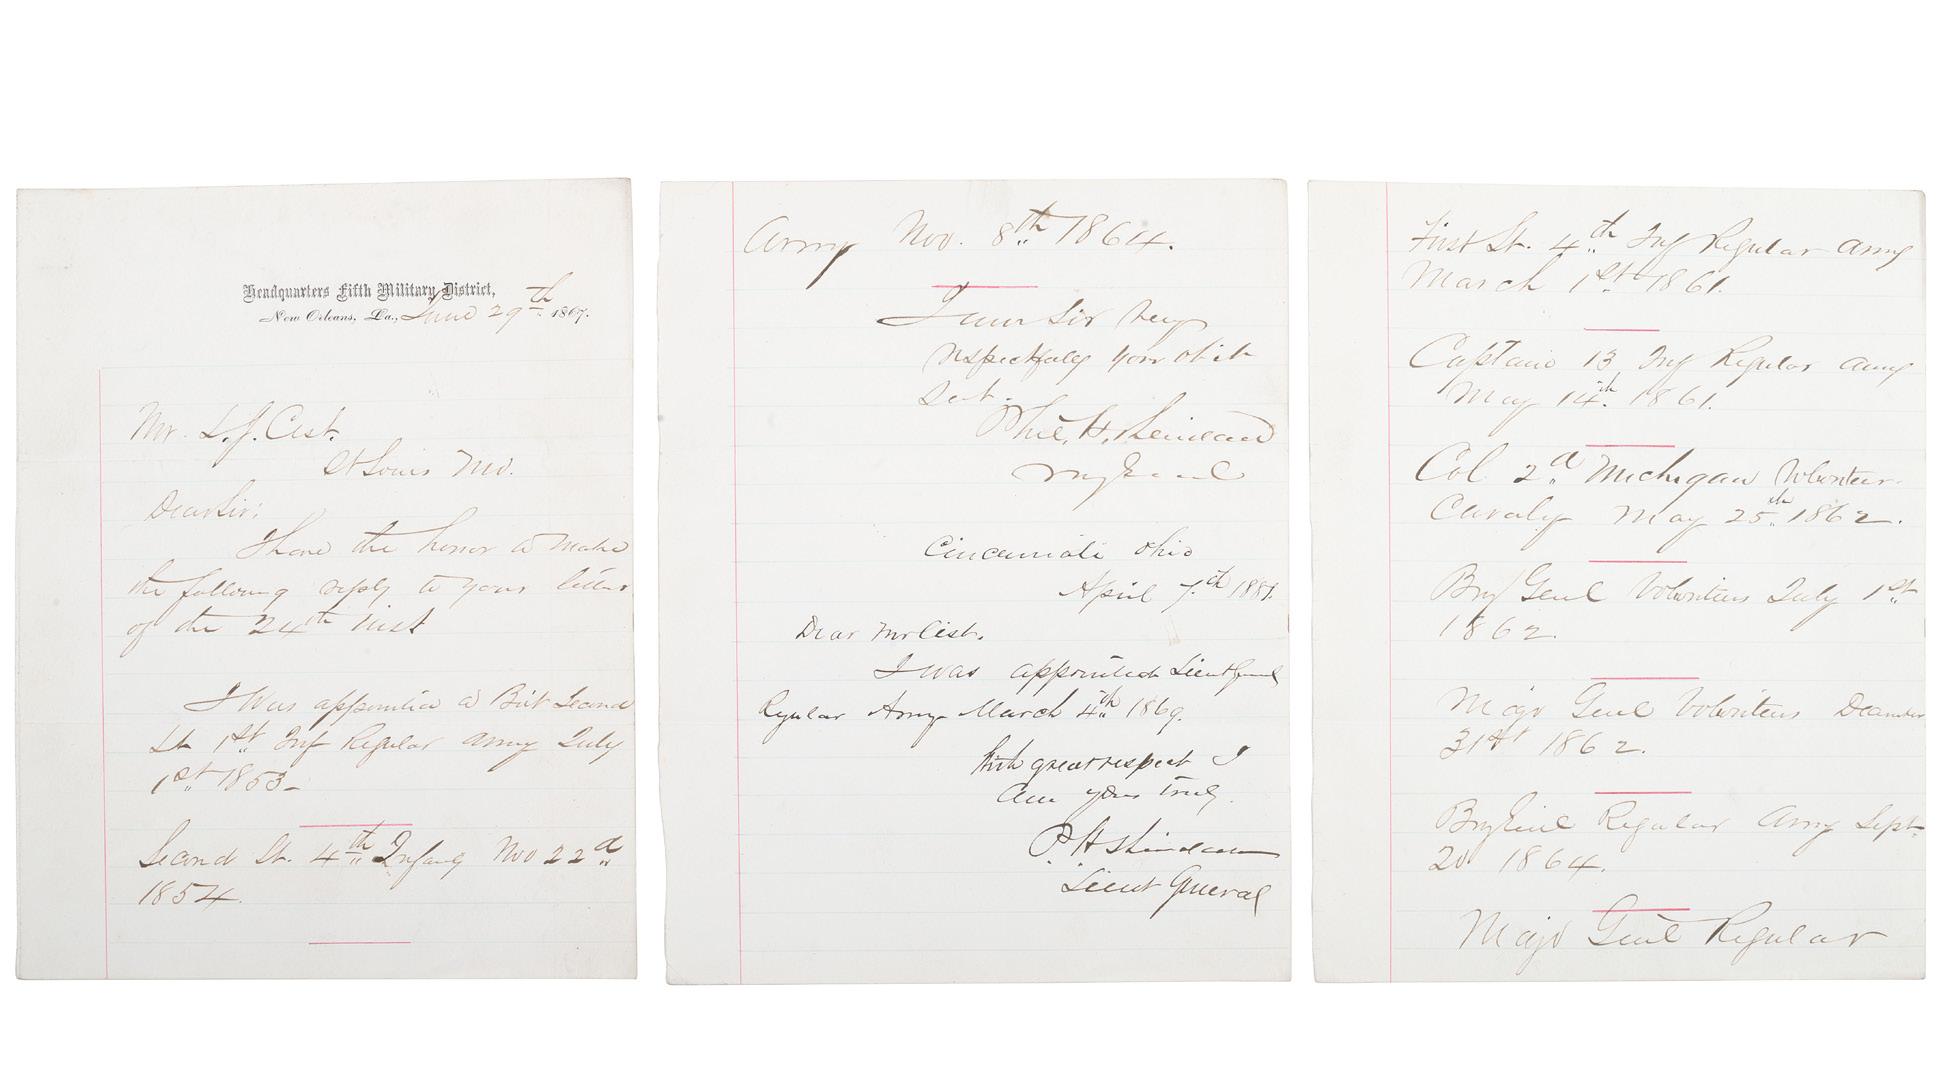 Headquarters Fifth Military District,
New Orleans, La., June 29th 1867.
Mr. L. J. Cist.
St Louis Mo.
Dear Sir:
I have the honor to make
the following reply to your letter
of the 24th inst
I was appointed a Bvt Second
Lt 1st Inf Regular Army July
1st 1853—
Second Lt. 4th Infany Nov 22d
1854.
Army Nov. 8th 1864.
I am Sir Very
respectfully your obdt
Svt.
Phil. H. Sheridan
Maj Genl
Cincinnati Ohio
April 7th 1881.
Dear Mr Cist.
I was appointed Lieut Genl
Regular Army March 4th 1869.
With great respect I
am yours truly.
P. H. Sheridan
Lieut General
First Lt. 4th Inf Regular Army
March 1st 1861.
Captain 13 Inf Regular Army
May 14th 1861.
Col 2d Michigan Volunteer
Cavaly May 25th 1862.
Brig Genl Volunteers July 1st
1862.
Major Genl Volunteers December
31st 1862.
Brig Genl Regular Army Sept.
20 1864.
Major Genl Regular